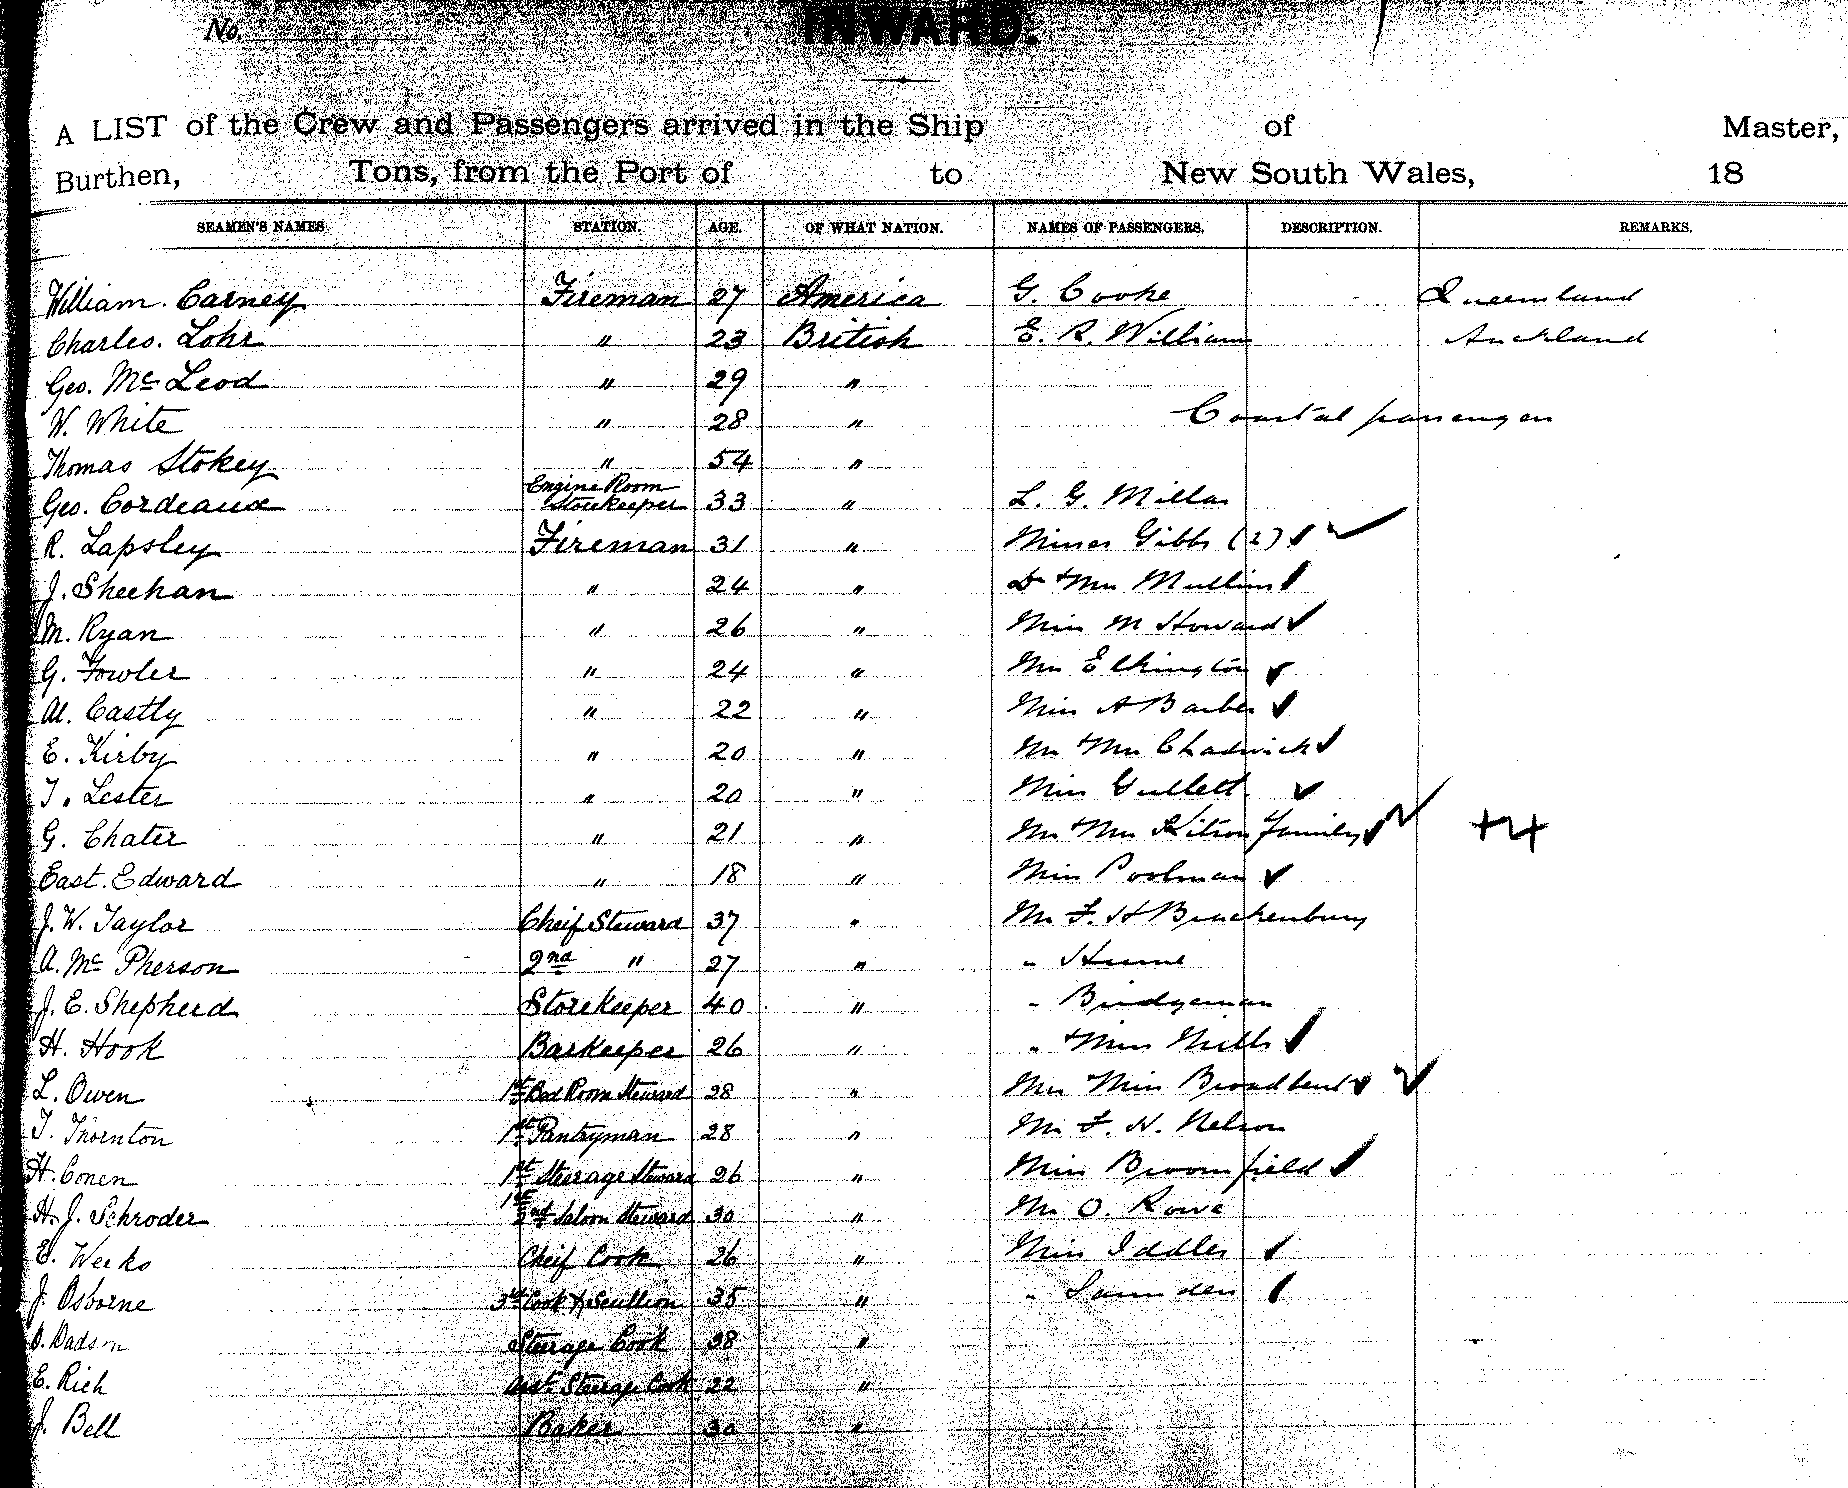 No.
INWARD.
A LIST of the Crew and Passengers arrived in the Ship of Master,
Burthen, Tons, from the Port of to New South Wales, 18
SEAMEN'S NAMES. STATION. AGE. OF WHAT NATION. NAMES OF PASSENGERS. DESCRIPTION. REMARKS.
William. Carney Fireman 27 America G. Cooke Queensland
Charles. Lohr " 23 British E. R. William Auckland
Geo. Mc Leod " 29 "
W. White " 28 " Coastal passengers
Thomas Stokey " 54 "
Geo. Cordeaux Engine Room Storekeeper 33 " L. G. Millar
R. Lapsley Fireman 31 " Misses Gibbs (2)
J. Sheehan " 24 " Dr + Mrs Mullins
M. Ryan " 26 " Miss M Howard
G. Fowler " 24 " Mr Elkington
Al. Castly " 22 " Miss A Barber
E. Kirby " 20 " Mr + Mrs Chadwick
T. Lester " 20 " Miss Gullett
G. Chater " 21 " Mr + Mrs Kitson family +4
East. Edward " 18 " Miss Poolman
J. W. Taylor Cheif Steward 37 " Mr F. H Brackenbury
A. Mc Pherson 2nd " 27 " " Hume
J. E. Shepherd Storekeeper 40 " " Bridgeman
H. Hook Barkeeper 26 " " + Miss Mills
L. Owen 1st Bed Room Steward 28 " Mrs Miss Broadbent
T. Thornton 1st Pantryman 28 " Mr F. N. Nelson
H. Conen 1st Steerage Steward 26 " Miss Broomfield
H. J. Schroder 1st 2nd Saloon Steward 30 " Mr O. Rowe
E. Weeks Cheif Cook 26 " Miss Iddles
J. Osborne 3rd Cook & Scullion 35 " " Saunders
Dadson Steerage Cook 38 "
E. Rich Asst. Steerage Cook 22 "
J. Bell Baker 30 "